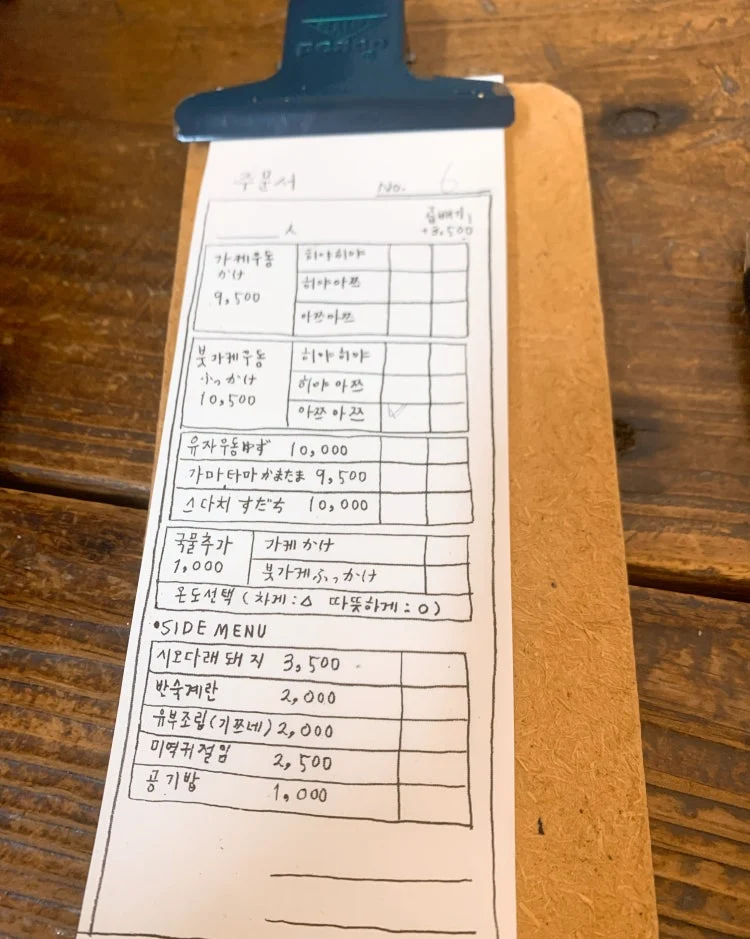 penco
주문서 No. 6
人 곱빼기
+3,500
가케우동 히야히야
かけ 히야아쯔
9,500 아쯔아쯔
붓가케우동 히야히야
ぶっかけ 히야아쯔
10,500 아쯔아쯔
유자우동 ゆず 10,000
가마타마 かまたま 9,500
스다치 すだち 10,000
국물추가 가케 かけ
1,000 붓가케 ぶっかけ
온도선택 (차게:△ 따뜻하게:O)
•SIDE MENU
시오다래돼지 3,500
반숙계란 2,000
유부조림(기쯔네) 2,000
미역귀절임 2,500
공기밥 1,000